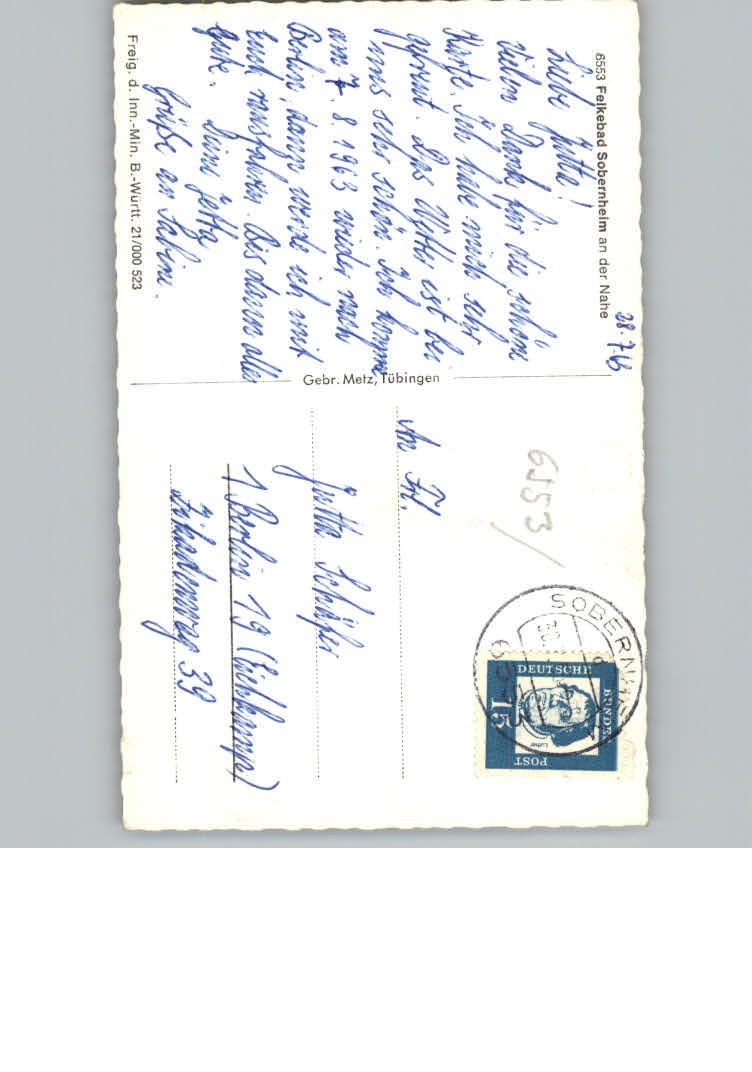 6553 Felkebad Sobernheim an der Nahe
28.7.63
Liebe Jutta!
Vielen Dank für die schöne
Karte. Ich habe mich sehr
gefreut. Das Wetter ist bei
uns sehr schön. Ich komme
am 7.8.1963 wieder nach
Berlin, dann werde ich mit
Euch rausfahren. Bis dann alles
gute. Deine Jetta
Grüße an Sabine.
Freig. d. Inn.-Min. B.-Württ. 21/000 523
Gebr. Metz, Tübingen
6553/
SOBERNHEIM
6553
DEUTSCHE
BUNDES
POST
15
Luther
An Frl.
Jutta Schäfer
1 Berlin 19 (Eichkamp)
39